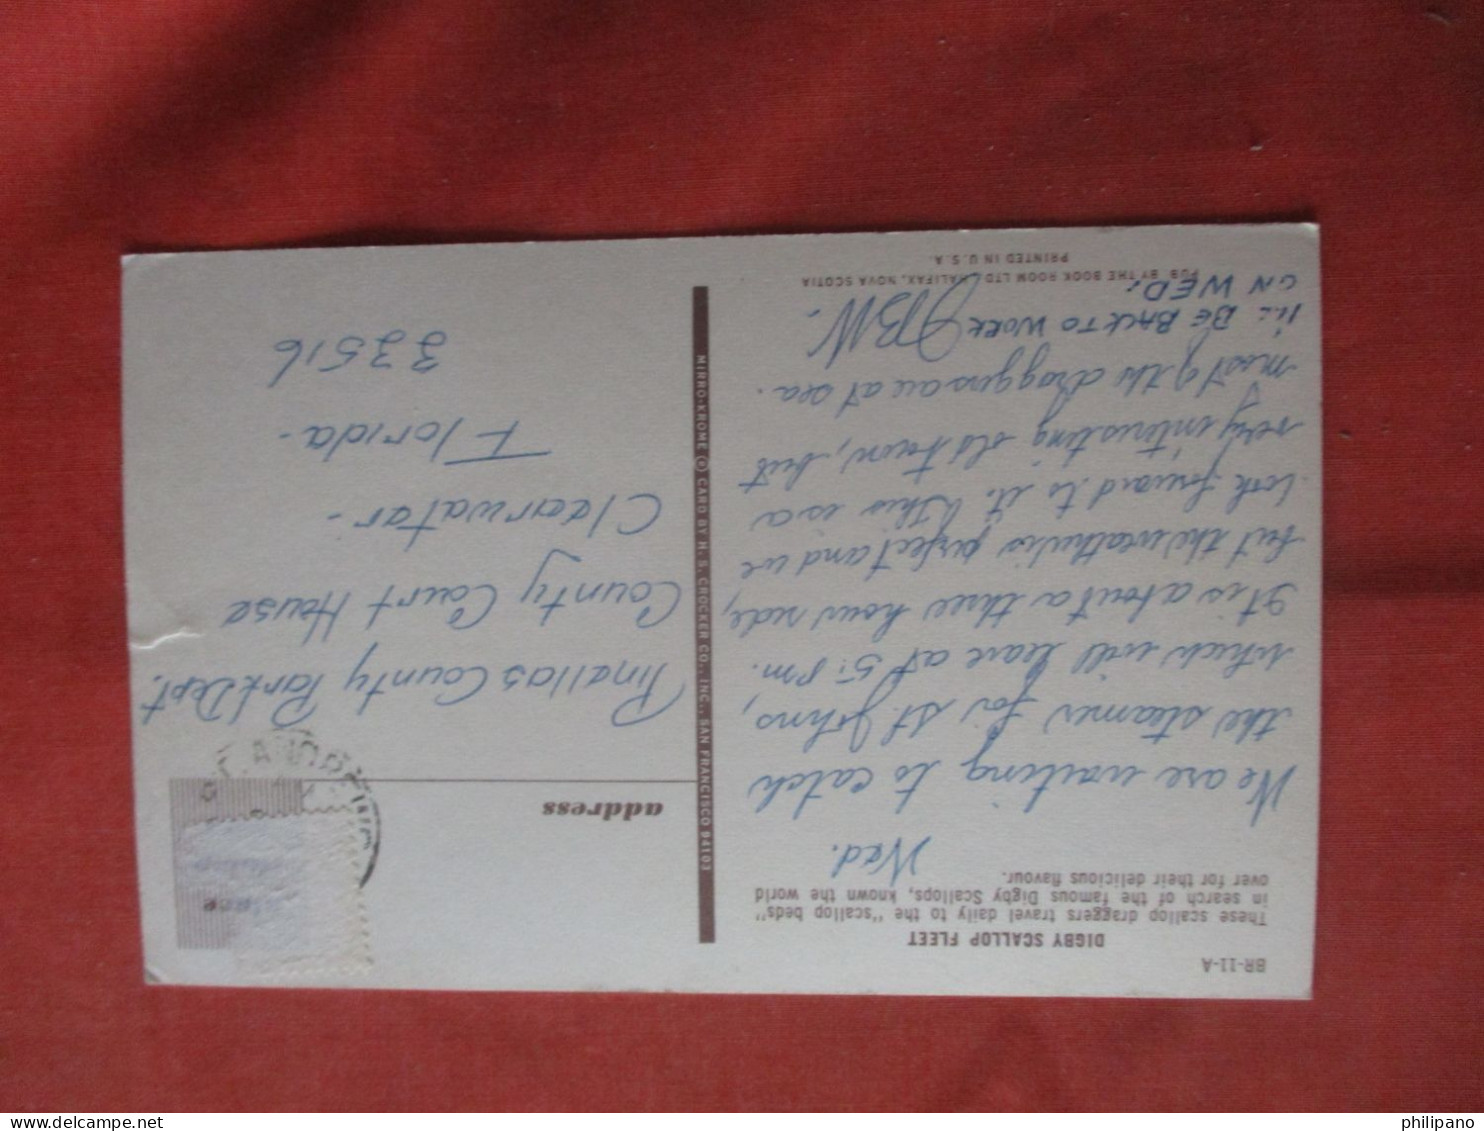 BR-11-A
DIGBY SCALLOP FLEET
These scallop draggers travel daily to the "scallop beds"
in search of the famous Digby Scallops, known the world
over for their delicious flavour.
Wed.
We are waiting to catch
the steamer for St. Johns,
which will leave at 5: P.m.
It is about a three hour ride,
but the weather is perfect and we
look forward to it. This is a
very interesting old town, but
most of the draggers are at sea.
I'LL BE BACK TO WORK
ON WED.
JBW.
PUB. BY THE BOOK ROOM LTD., HALIFAX, NOVA SCOTIA
PRINTED IN U.S.A.
MIRRO-KROME ® CARD BY H. S. CROCKER CO., INC., SAN FRANCISCO 94103
place
address
Pinallas County Park Dept.
County Court House
Clearwater-
Florida-
33516
philipano